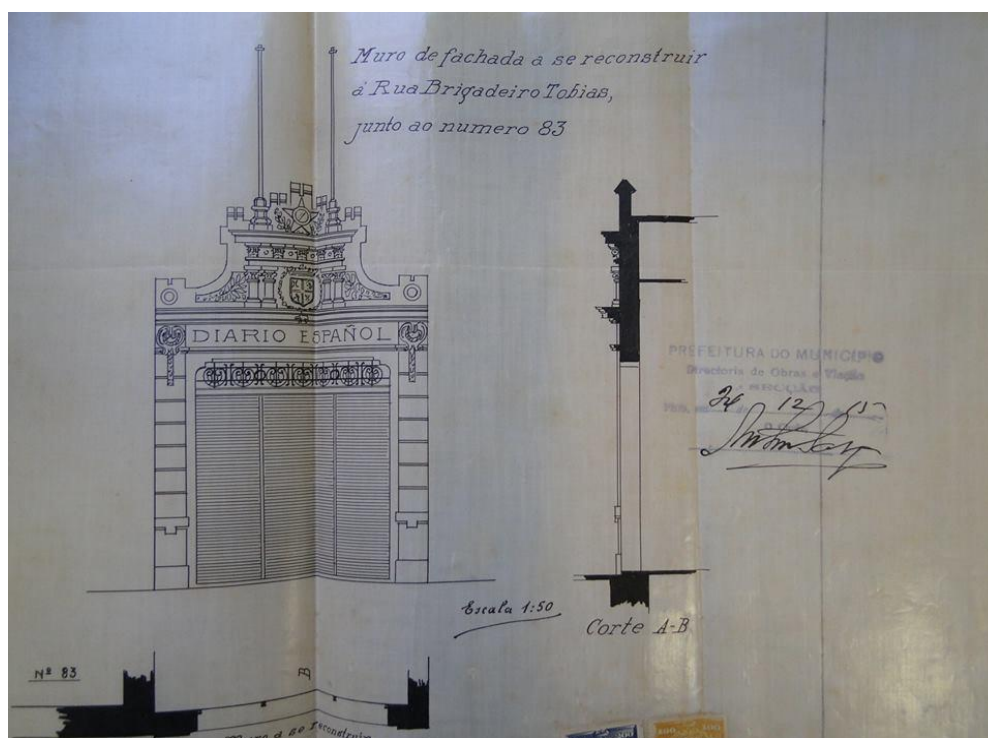 Muro de fachada a se reconstruir
á Rua Brigadeiro Tobias,
junto ao numero 83
DIARIO ESPAÑOL
PREFEITURA DO MUNICIPIO
Directoria de Obras e Viação
SECÇÃO
24 12 15
Escala 1:50
Corte A-B
Nº 83
B
Muro a se reconstruir